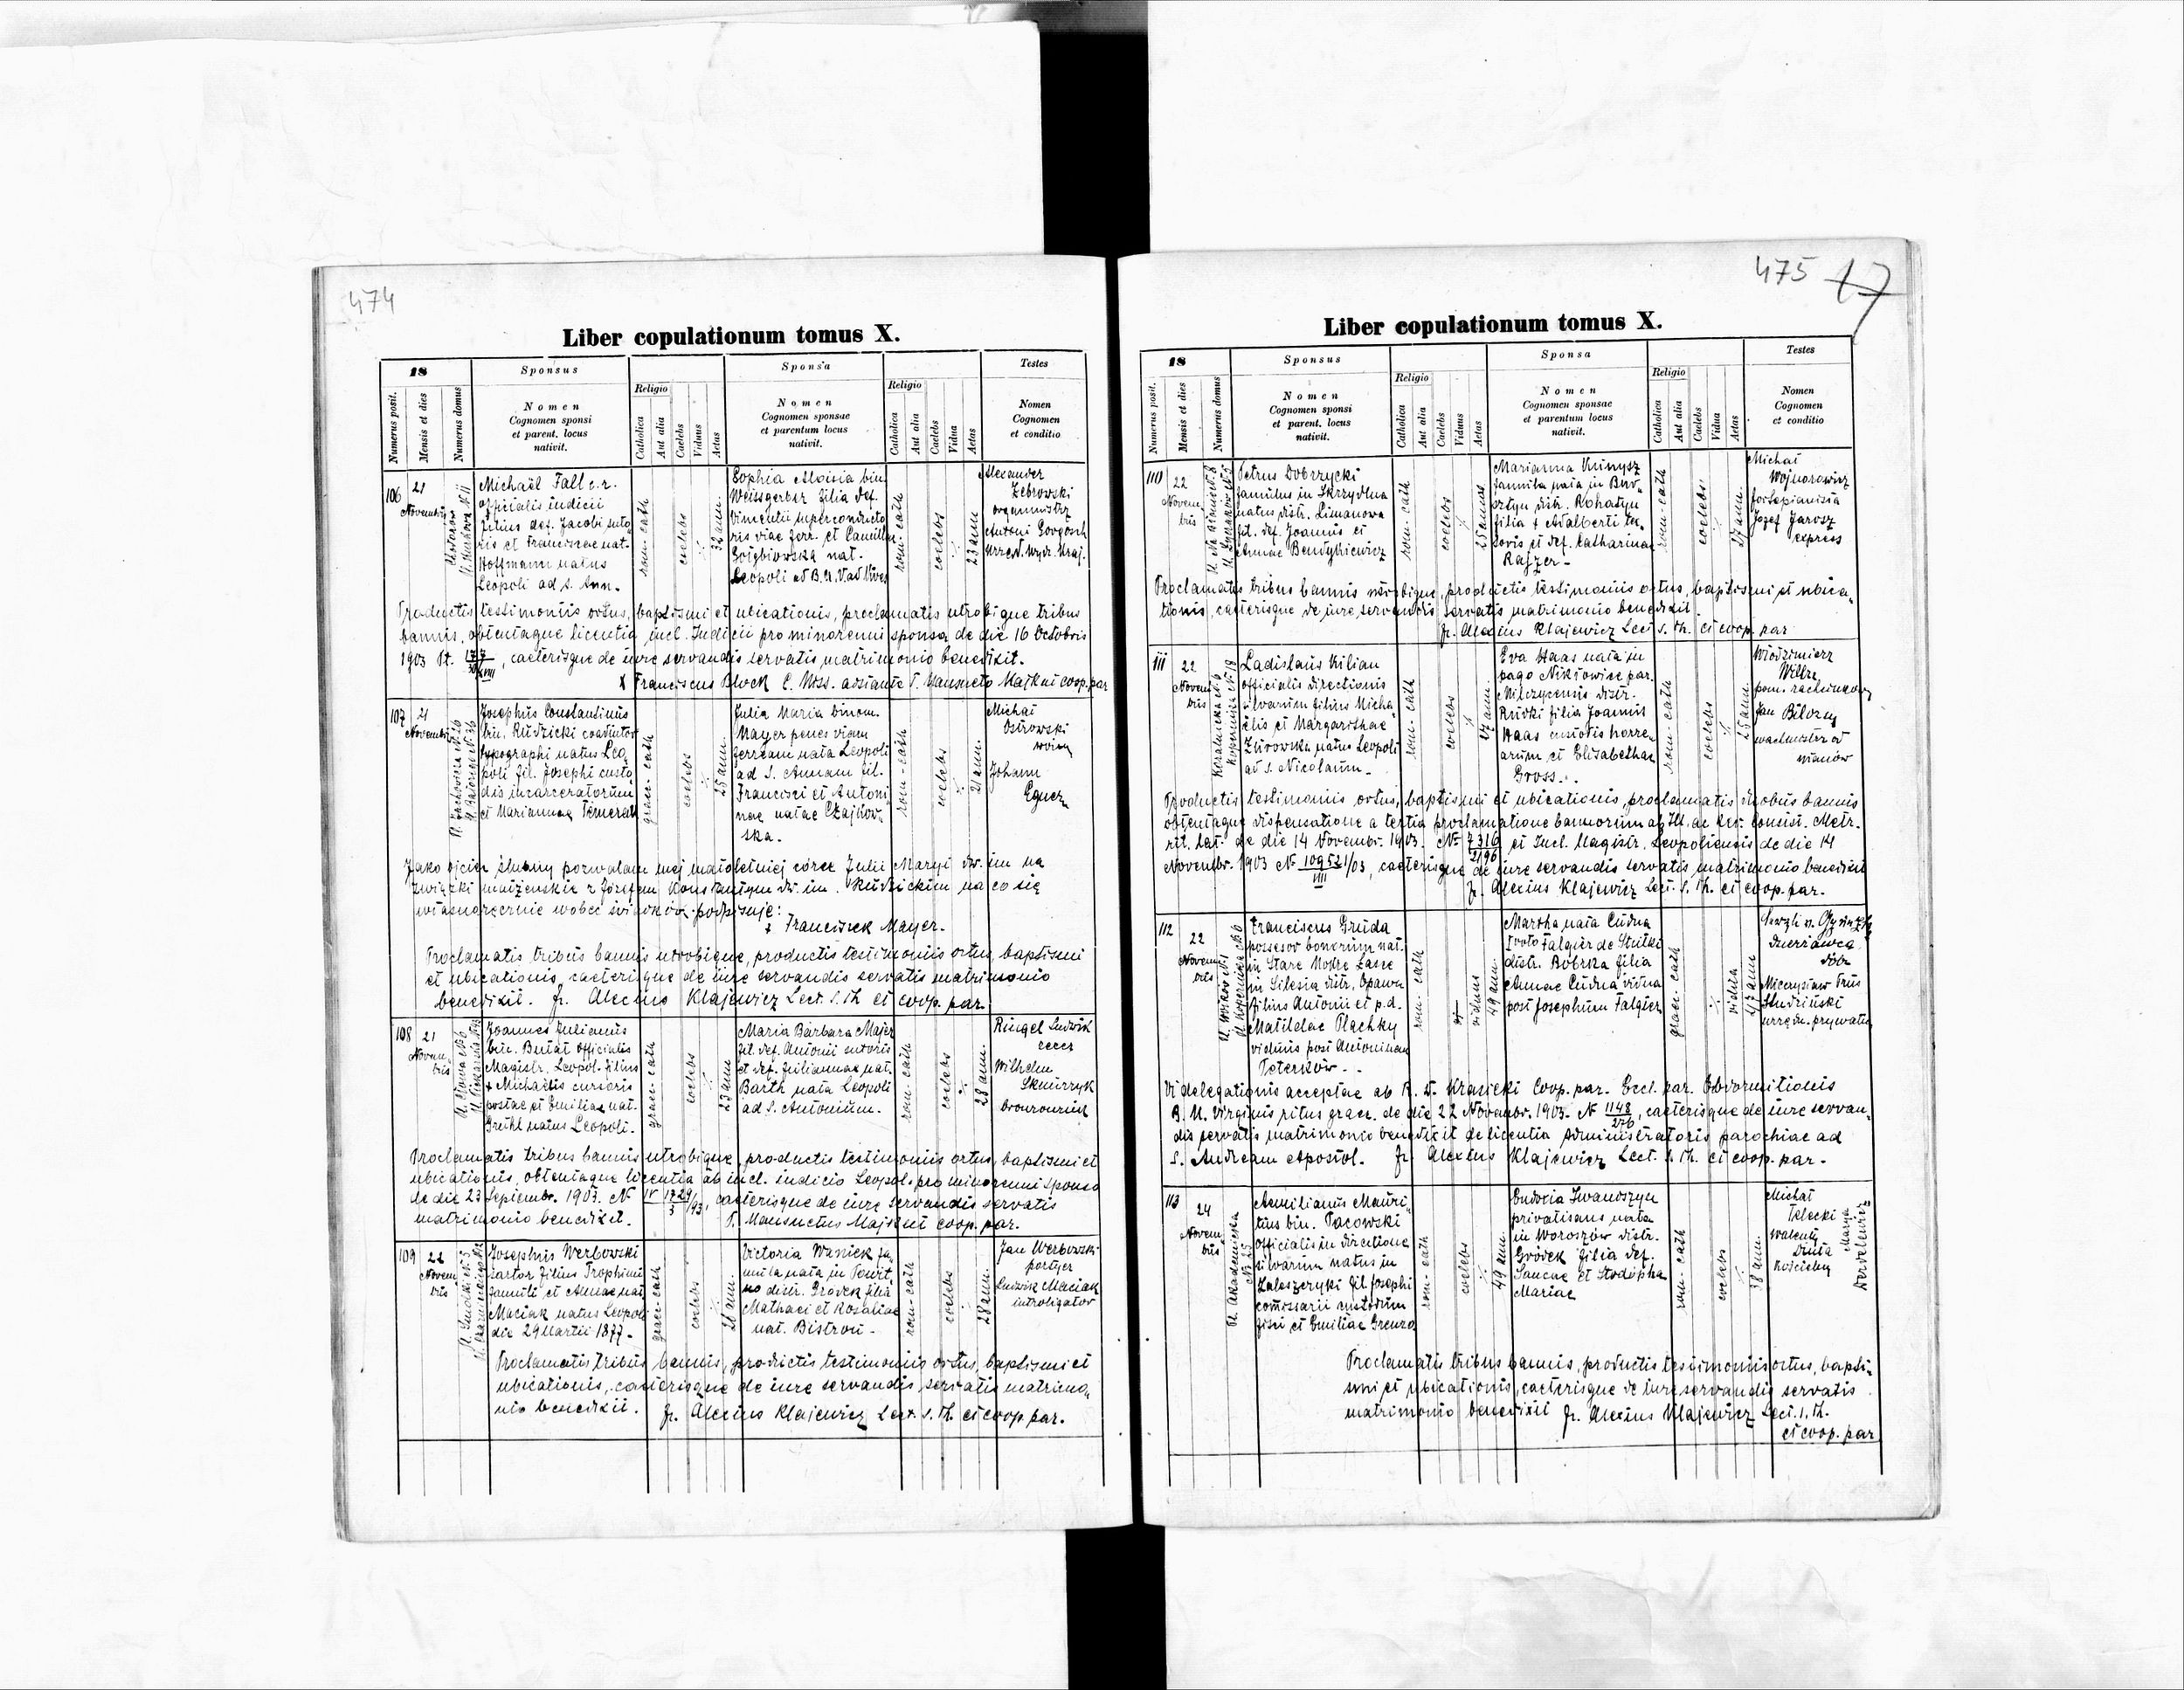 474
Liber copulationum tomus X.
18
Sponsus
Sponsa
Testes
Numerus posit.
Mensis et dies
Numerus domus
Nomen
Cognomen sponsi
et parent. locus
nativit.
Religio
Catholica
Aut alia
Caelebs
Viduus
Aetas
Nomen
Cognomen sponsae
et parentum locus
nativit.
Religio
Catholica
Aut alia
Caelebs
Vidua
Aetas
Nomen
Cognomen
et conditio
106
21
Novembris
Michaël Fall c.r.
officialis iudicii
filius def. Jacobi suto
ris et Franciscae nat.
Hoffmann natus
Leopoli ad S. Ann.
rom-cath
coelebs
32 ann.
Sophia Aloisia bin.
Weissgerber filia def.
Vincentii superconducto
ris viae ferr. et Camillae
nat.
Leopoli ad B.M.V. ad Nives
rom-cath
coelebs
23 ann
Alexander
Żebrowski
organmistrz
Antoni
Urzęd. Wydz. Kraj.
Productis testimoniis ortus, baptismi et ubicationis, proclamatis utrobique tribus
bannis, obtentaque licentia incl. Iudicii pro minorenni sponsa de die 16 Octobris
1903 caeterisque de iure servandis servatis matrimonio benedixit.
X Franciscus Block C. Miss. assistante P. Mansueto Majkut coop. par
107
21
Novembris
Josephus Constantinus
bin. Rudzicki coadiutor
typographi natus Leo
poli fil. Josephi custo
dis incarceratorum
et Mariannae
graec-cath
coelebs
25 ann.
Julia Maria binom.
Mayer penes viam
ferream nata Leopoli
ad S. Annam fil.
Francisci et Antoni
nae natae Czajkow
ska.
rom-cath
coelebs
21 ann.
Michał
Ostrowski
Johann
Egner
Jako ojciec ślubny pozwalam mej małoletniej córce Julii Maryi dw. im na
związki małżeńskie z Józefem Konstantym dw. im. Rudzickim na co się
własnoręcznie wobec świadków podpisuje:
+ Franciszek Mayer.
Proclamatis tribus bannis utrobique, productis testimoniis ortus, baptismi
et ubicationis, caeterisque de iure servandis servatis matrimonio
benedixit. Fr. Alexius Klajewicz Lect. S. Th et coop. par.
108
21
Novem
bris
Joannes Julianus
bin. Butat officialis
Magistr. Leopol. filius
+ Michaelis cursoris
postae et Emiliae nat.
Greihl natus Leopoli.
graec-cath
coelebs
23 ann
Maria Barbara Majer
fil. def. Antonii sutoris
et def. Juliannae nat.
Barth nata Leopoli
ad S. Antonium.
rom-cath
coelebs
28 ann.
Ringel Ludwik
Wilhelm
Proclamatis tribus bannis utrobique, productis testimoniis ortus, baptismi et
ubicationis, obtentaque licentia ab incl. iudicio Leopol. pro minorenni sponso
de die 23 Septembr. 1903. N caeterisque de iure servandis servatis
matrimonio benedixit. P. Mansuetus Majkut coop. par.
109
22
Novem
bris
Josephus Werbowski
sartor filius Trophimi
famuli et Annae nat
Maciak natus Leopoli
die 29 Martii 1877.
graec-cath
coelebs
26 ann.
Victoria Waniek fa
mula nata in Powit
no distr. Grodek filia
Mathaei et Rosaliae
nat. Bistroń.
rom-cath
coelebs
28 ann.
Jan Werbowski
portyer
Ludwik Maciak
introligator
Proclamatis tribus bannis, productis testimoniis ortus, baptismi et
ubicationis, caeterisque de iure servandis servatis matrimo
nio benedixit. Fr. Alexius Klajewicz Lect. S. Th. et coop par.
475
17
Liber copulationum tomus X.
18
Sponsus
Sponsa
Testes
Numerus posit.
Mensis et dies
Numerus domus
Nomen
Cognomen sponsi
et parent. locus
nativit.
Religio
Catholica
Aut alia
Caelebs
Viduus
Aetas
Nomen
Cognomen sponsae
et parentum locus
nativit.
Religio
Catholica
Aut alia
Caelebs
Vidua
Aetas
Nomen
Cognomen
et conditio
110
22
Novem
bris
Petrus Dobrzycki
famulus in Skrzydlna
natus distr. Limanowa
fil. def. Joannis et
Annae Bendykiewicz
rom-cath
coelebs
25 annos
Marianna
famula nata in Bur
sztyn distr. Rohatyn
filia + Adalberti te
xoris et def. Catharinae
Rajzer
rom-cath
coelebs
27 ann.
Michał
Wojnarowicz
fortepianista
Józef Jarosz
express
Proclamatis tribus bannis utrobique, productis testimoniis ortus, baptismi et ubica
tionis, caeterisque de iure servandis servatis matrimonio benedixit
Fr. Alexius Klajewicz Lect S. Th. et coop. par
111
22
Novem
bris
Ladislaus Kilian
officialis directionis
silvarum filius Micha
elis et Margarithae
Żurowska natus Leopoli
ad S. Nicolaum
rom-cath
coelebs
ann.
Eva Haas nata in
pago Nikłowice par.
Milczycensis distr.
Rudki filia Joannis
Haas custodis horre
arum et Elisabethae
Gross.
rom-cath
coelebs
ann.
Włodzimierz
pom. rachunkowy
Jan
wachmistrz od
ułanów
Productis testimoniis ortus, baptismi et ubicationis, proclamatis duobus bannis
obtentaque dispensatione a tertia proclamatione bannorum ab Ill. ac Rev. Consist. Metr.
rit. lat. de die 14 Novembr. 1903. N. 7316/2196 et Incl. Magistr. Leopoliensis de die 14
Novembr. 1903 N 109521/03, caeterisque de iure servandis servatis matrimonio benedixit
Fr. Alexius Klajewicz Lect. S. Th. et coop. par.
112
22
Novem
bris
Franciscus Gruda
possesor bonorum nat.
in Stare
in Silesia distr. Opawa
filius Antonii et p.d.
Matildae Plachky
viduus post Antoninam
Peterków
rom-cath
viduus
49 ann.
Martha nata Cudna
I voto Falgier de Strilki
distr. Bobrka filia
Annae Cudna vidua
post Josephum Falgier
graec-cath
vidua
47 ann
dzierżawca
dóbr
Mieczysław Trus
Studziński
urzędn. prywatny
Vi delegationis acceptae ab R. D. Krasicki Coop. par. Eccl. par. Obdormitionis
B. M. Virginis ritus graec. de die 22 Novembr. 1903. N 1148/276, caeterisque de iure servan
dis servatis matrimonio benedixit de licentia Administratoris parochiae ad
S. Andream Apostol. Fr. Alexius Klajewicz Lect. S. Th. et coop. par.
113
24
Novem
bris
Ul. Akademicka
Aemilianus Mauri
tius bin. Pacowski
officialis in directione
silvarum natus in
Zaleszczyki fil Josephi
comissarii custodum
fisci et Emiliae Grenzo
rom-cath
coelebs
49 ann.
Eudocia Iwanoszyn
privatisans nata
in Woroszów distr.
Gródek filia def.
Sancae et Stodopha
Mariae
rom-cath
coelebs
38 ann.
Michał
Telecki
Walenty
Duda
kościelny
Marya
Proclamatis tribus bannis, productis testimoniis ortus, bapti
smi et ubicationis, caeterisque de iure servandis servatis
matrimonio benedixit Fr. Alexius Klajewicz Lect. S. Th.
et coop. par